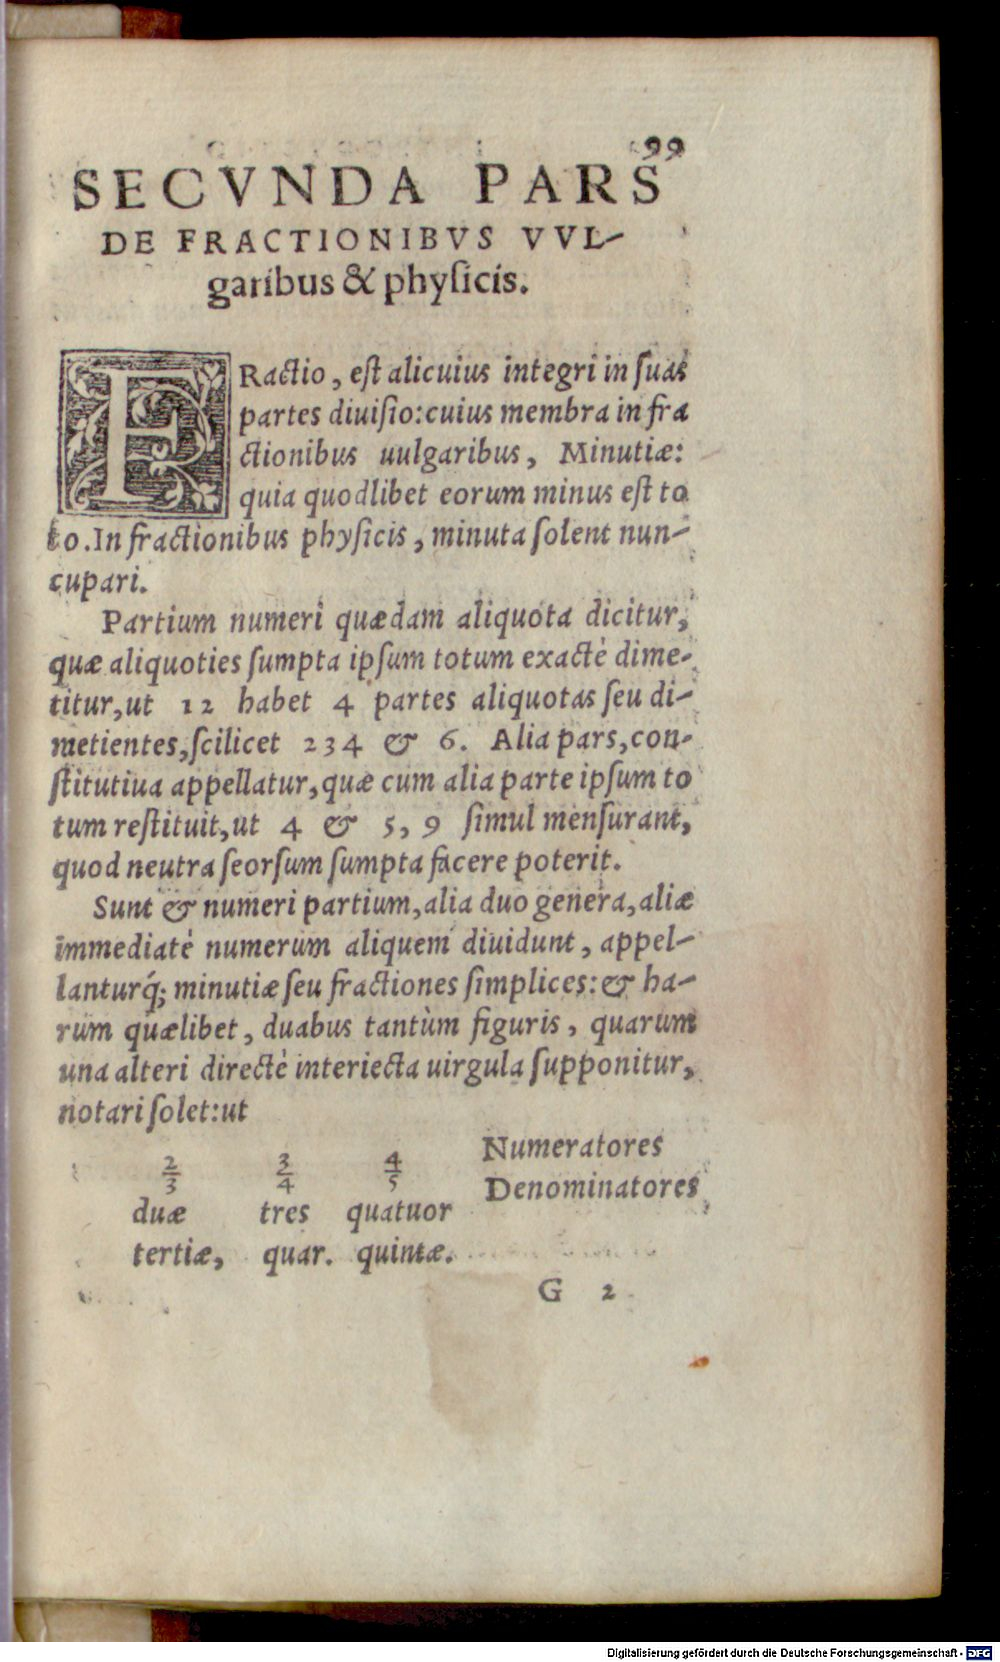 99
SECVNDA PARS
DE FRACTIONIBVS VVL-
garibus & physicis.
FRactio, est alicuius integri in suas
partes diuisio: cuius membra in fra
ctionibus uulgaribus, Minutiæ:
quia quodlibet eorum minus est to
to. In fractionibus physicis, minuta solent nun-
cupari.
Partium numeri quædam aliquota dicitur,
quæ aliquoties sumpta ipsum totum exactè dime-
titur, ut 12 habet 4 partes aliquotas seu di-
metientes, scilicet 2 3 4 & 6. Alia pars, con-
stitutiua appellatur, quæ cum alia parte ipsum to
tum restituit, ut 4 & 5, 9 simul mensurant,
quod neutra seorsum sumpta facere poterit.
Sunt & numeri partium, alia duo genera, aliæ
immediatè numerum aliquem diuidunt, appel-
lanturq́; minutiæ seu fractiones simplices: & ha-
rum quælibet, duabus tantùm figuris, quarum
una alteri directè interiecta uirgula supponitur,
notari solet: ut
2/3 3/4 4/5 Numeratores
Denominatores
duæ tres quatuor
tertiæ, quar. quintæ.
G 2
Digitalisierung gefördert durch die Deutsche Forschungsgemeinschaft - DFG